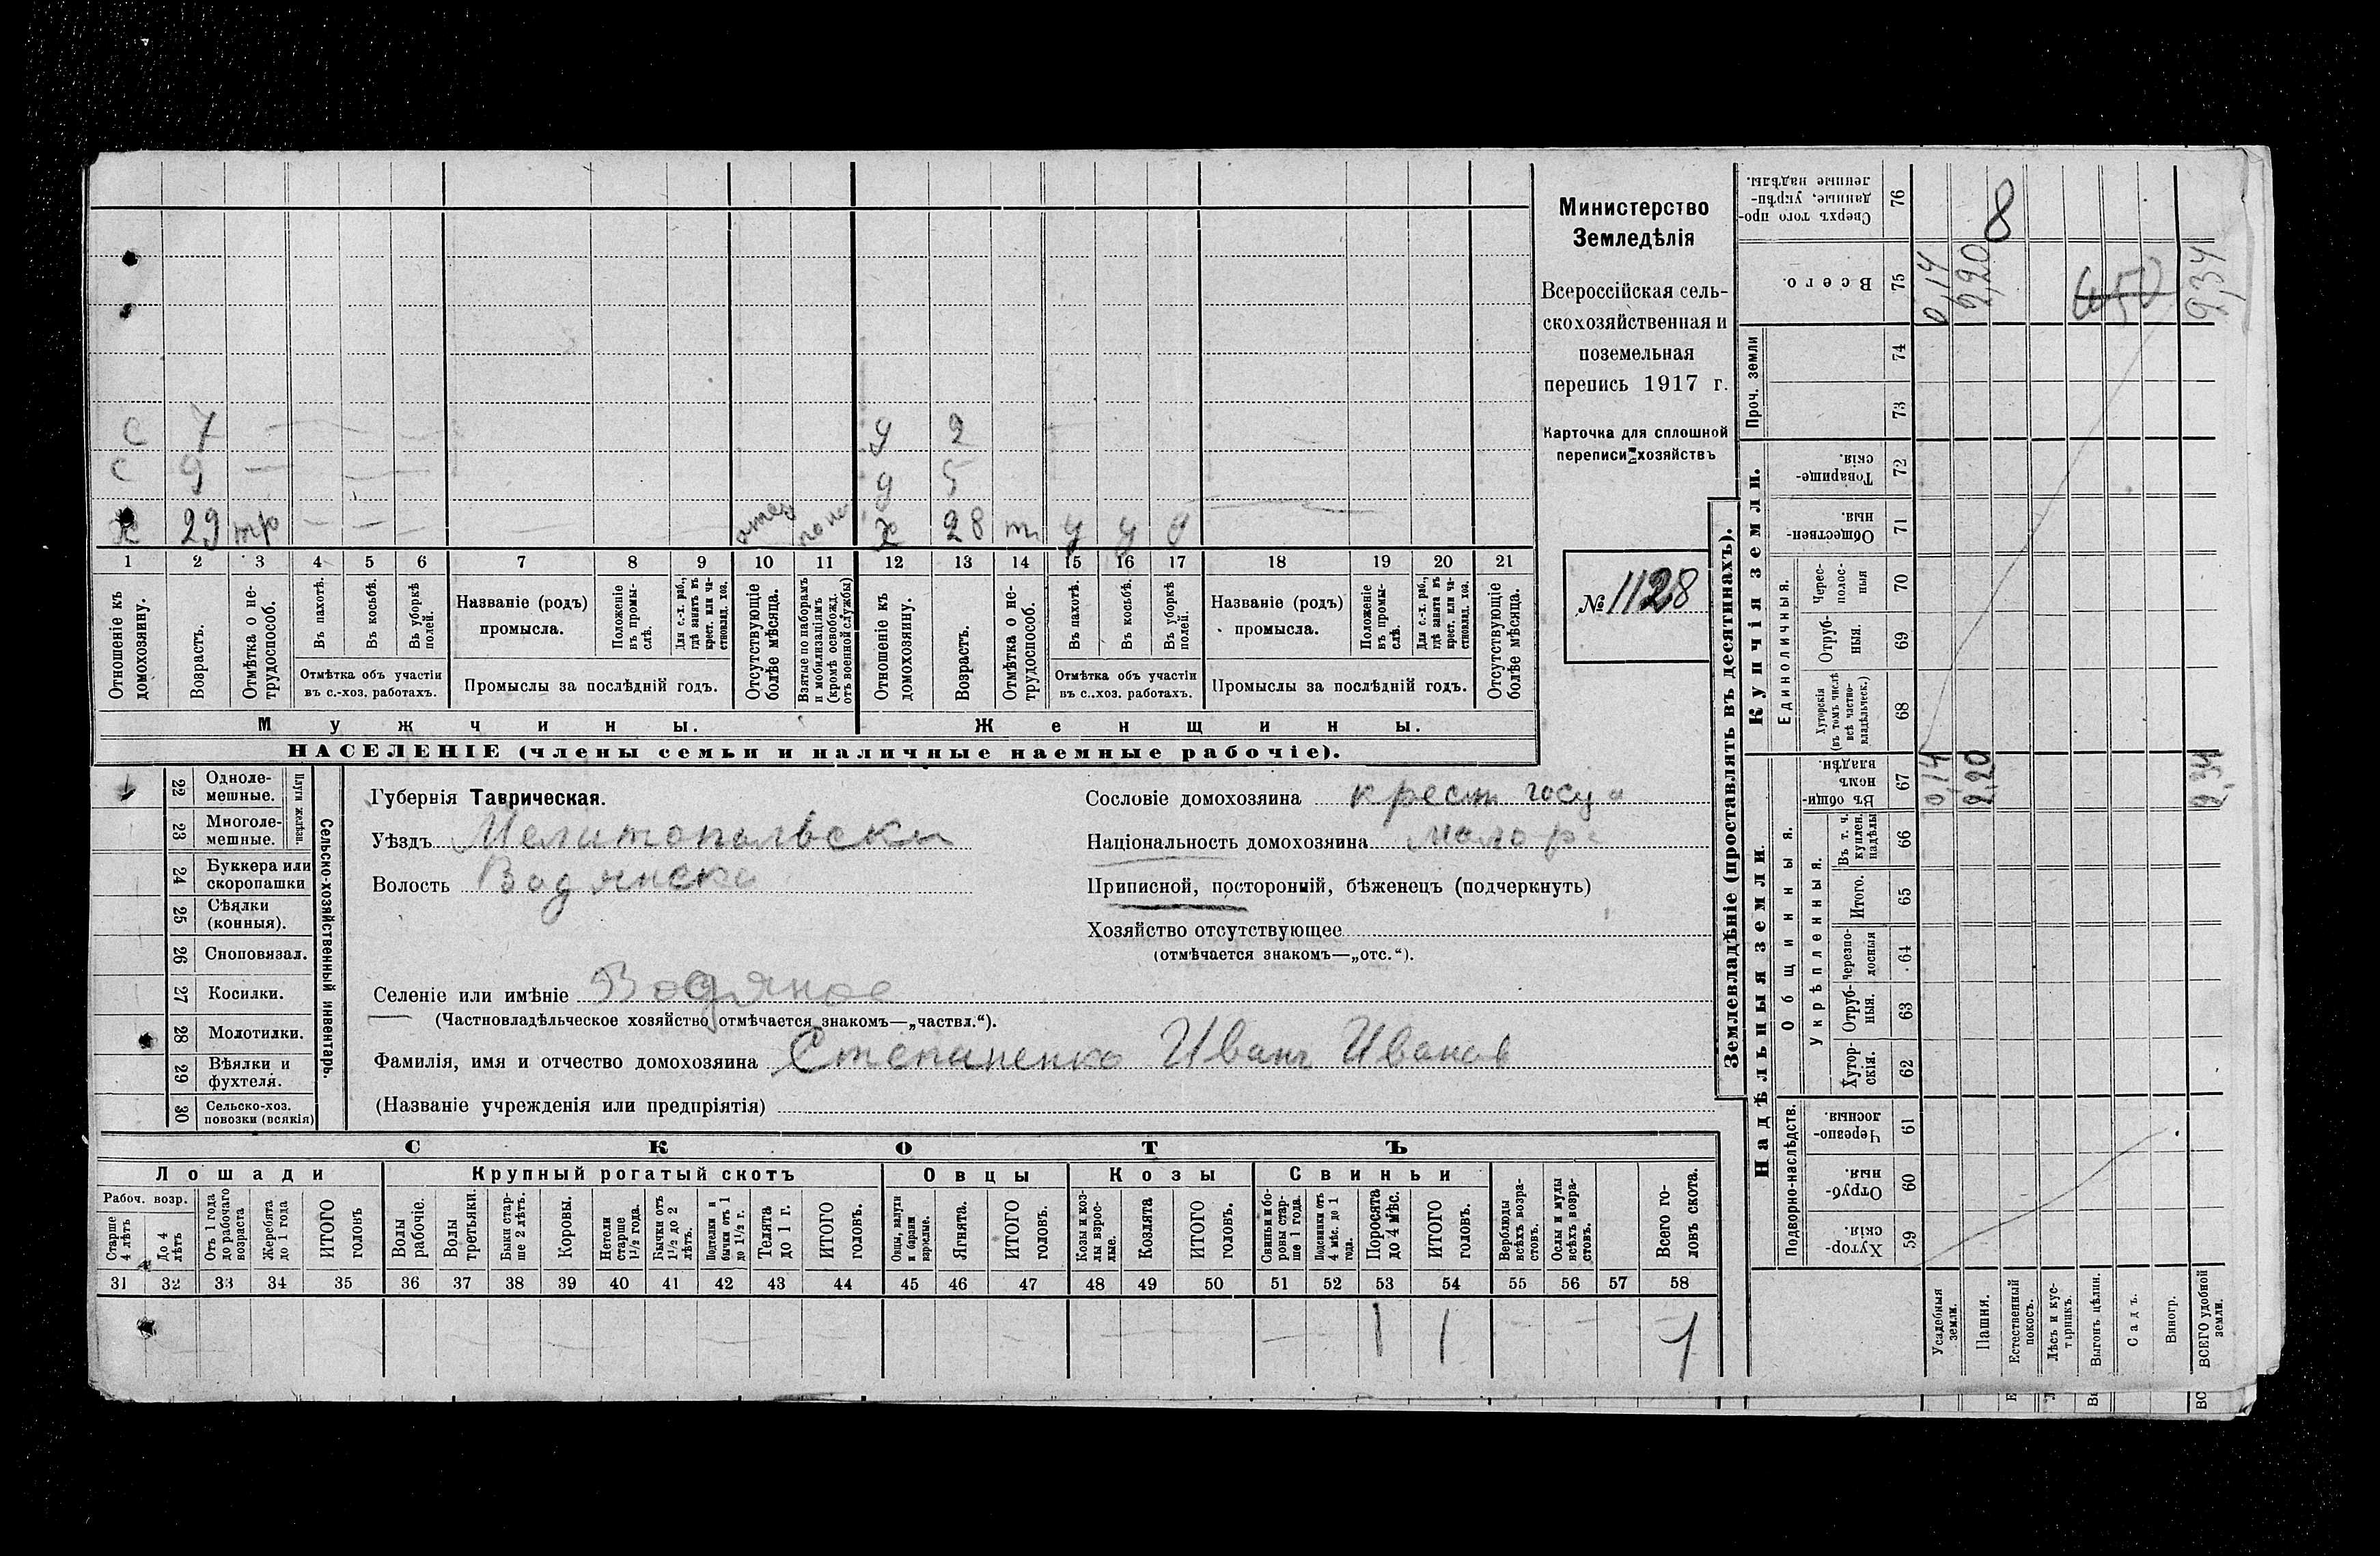 С 7 — — — — У 2 —
С 9 — — — — д 5
х 29 тр — — — — — — х 28 т у у у — —
1 2 3 4 5 6 7 8 9 10 11 12 13 14 15 16 17 18 19 20 21
Отношеніе къ домохозяину.
Возрастъ.
Отмѣтка о не-трудоспособ.
Въ пахотѣ.
Въ косьбѣ.
Въ уборкѣ полей.
Отмѣтка объ участіи
въ с.-хоз. работахъ.
Названіе (родъ)
промысла.
Положеніе въ промы-слѣ.
Для с.-х. раб., гдѣ занятъ въ крест. или ча-стновлад. хоз.
Промыслы за послѣдній годъ.
Отсутствующіе болѣе мѣсяца.
Взятые по наборамъ и мобилизаціямъ (кромѣ освобожд. отъ военной службы)
Отношеніе къ домохозяину.
Возрастъ.
Отмѣтка о не-трудоспособ.
Въ пахотѣ.
Въ косьбѣ.
Въ уборкѣ полей.
Отмѣтка объ участіи
въ с..хоз. работахъ.
Названіе (родъ)
промысла.
Положеніе въ промы-слѣ.
Для с.-х. раб., гдѣ занята въ крест. или ча-стновлад. хоз.
Промыслы за послѣдній годъ.
Отсутствующіе болѣе мѣсяца.
Мужчины.
Женщины.
НАСЕЛЕНІЕ (члены семьи и наличные наемные рабочіе).
Министерство
Земледѣлія
Всероссійская сель-
скохозяйственная и
поземельная
перепись 1917 г.
Карточка для сплошной
переписи хозяйствъ
№ 1128
22 Одноле-мешные.
23 Многоле-мешные.
Плуги желѣзн.
24 Буккера или скоропашки
25 Сѣялки (конныя).
26 Сноповязал.
27 Косилки.
28 Молотилки.
29 Вѣялки и фухтеля.
30 Сельско-хоз. повозки (всякія)
Сельско-хозяйственный инвентарь.
Губернія Таврическая.
Уѣздъ Мелитопольски
Волость Водянска
Селеніе или имѣніе Водяное
(Частновладѣльческое хозяйство отмѣчается знакомъ—„частвл.“).
Фамилія, имя и отчество домохозяина Степаненко Иванъ Иванов
(Названіе учрежденія или предпріятія)
Сословіе домохозяина крест госу
Національность домохозяина мало р
Приписной, посторонній, бѣженецъ (подчеркнуть)
Хозяйство отсутствующее
(отмѣчается знакомъ—„отс.“).
СКОТЪ
Лошади
Крупный рогатый скотъ
Овцы
Козы
Свиньи
Рабоч. возр.
Старше 4 лѣтъ
До 4 лѣтъ
Отъ 1 года до рабочаго возраста
Жеребята до 1 года
ИТОГО головъ
Волы рабочіе.
Волы третьяки.
Быки стар-ше 2 лѣтъ.
Коровы.
Нетели старше 1½ года.
Бычки отъ 1½ до 2 лѣтъ.
Подтелки и бычки отъ 1 до 1½ г.
Телята до 1 г.
ИТОГО головъ.
Овцы, валухи и бараны взрослые.
Ягнята.
ИТОГО головъ.
Козы и коз-лы взрос-лые.
Козлята
ИТОГО головъ.
Свиньи и бо-ровы стар-ше 1 года.
Подсвинки отъ 4 мѣс. до 1 года.
Поросята до 4 мѣс.
ИТОГО головъ.
Верблюды всѣхъ возра-стовъ.
Ослы и мулы всѣхъ возра-стовъ.
Всего го-ловъ скота.
31 32 33 34 35 36 37 38 39 40 41 42 43 44 45 46 47 48 49 50 51 52 53 54 55 56 57 58
1 1 1
Землевладѣніе (проставлять въ десятинахъ).
Надѣльныя земли.
Купчія земли.
Проч. земли
Подворно-наслѣдств.
Общинныя.
Укрѣпленныя.
Единоличныя.
Хутор-скія. 59
Отруб-ныя. 60
Черезпо-лосныя. 61
Хутор-скія. 62
Отруб-ныя. 63
Черезпо-лосныя 64
Итого. 65
Въ т. ч. куплен. надѣлы 66
Въ общи-номъ владѣн. 67
Хуторскія (въ томъ числѣ всѣ частно-владѣльческ.) 68
Отруб-ныя. 69
Черес-полос-ныя 70
Обществен-ныя. 71
Товарище-скія. 72
73
74
Всего. 75
Сверхъ того про-данные, укрѣп-ленные надѣлы. 76
Усадебныя земли. 0,14 0,14
Пашня. 2,20 2,20 8
Естественный покосъ.
Лѣсъ и кус-тарникъ.
Выгонъ, цѣлин.
Садъ.
Виногр.
ВСЕГО удобной земли. 2,34 2,34